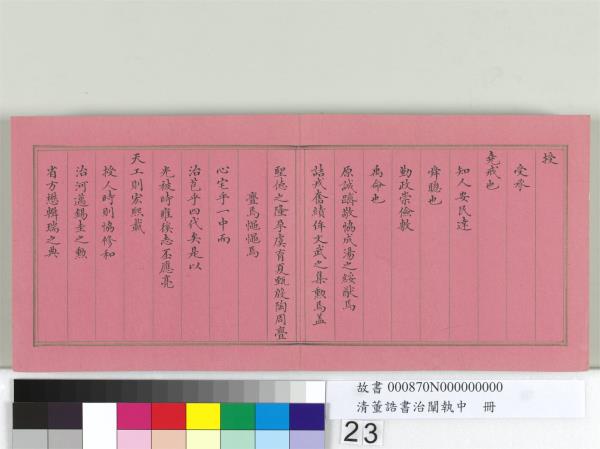 授
受參
堯戒也
知人安民達
舜聰也
勤政崇儉敷
禹命也
原誠躋敬協成湯之綏猷焉
詰戎奮績侔文武之集勳焉蓋
聖德之隆孕虞育夏甄殷陶周亹
亹焉慥慥焉
心宅乎一中而
治苞乎四代矣是以
光被時雍徯志丕應亮
天工則宏熙載
授人時則協修和
治河邁錫圭之勲
省方懋輯瑞之典
故書 000870N000000000
清董誥書治闡執中 冊
23